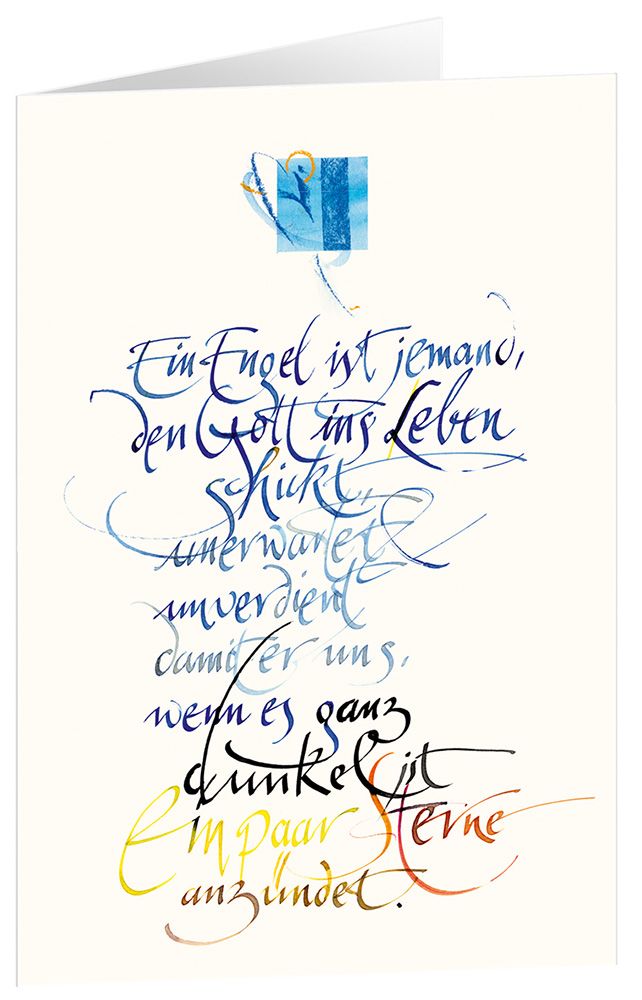 Ein Engel ist jemand,
den Gott ins Leben
schickt,
unerwartet &
unverdient
damit er uns,
wenn es ganz
dunkel ist
ein paar Sterne
anzündet.